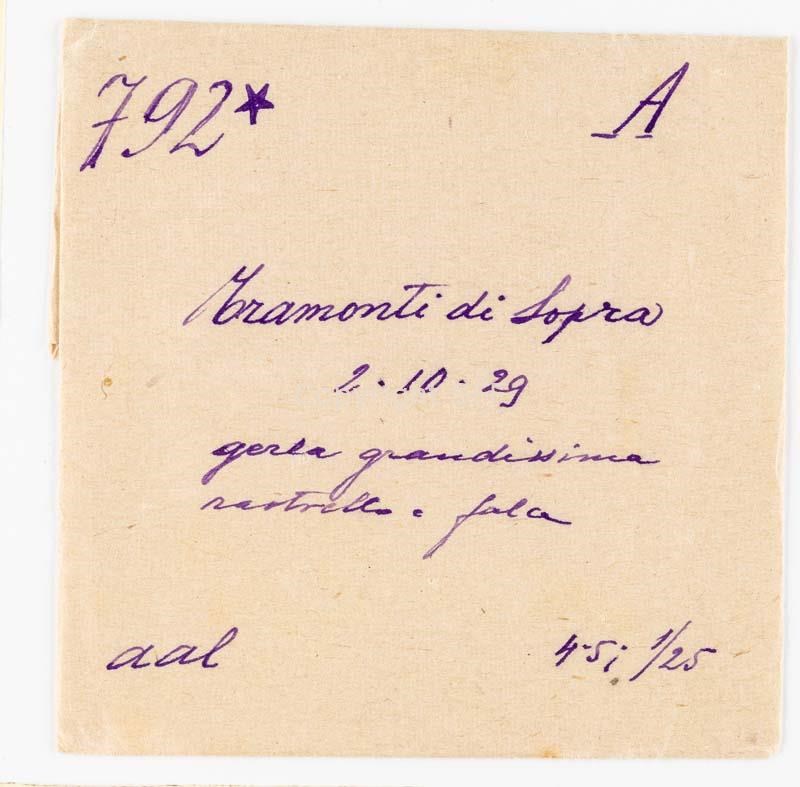 792* A
Tramonti di Sopra
2·10·29
gerla grandissima
rastrello e falce
aal 4.5; 1/25